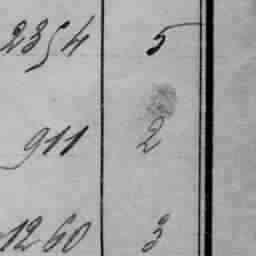 2354 5
911 2
1260 3